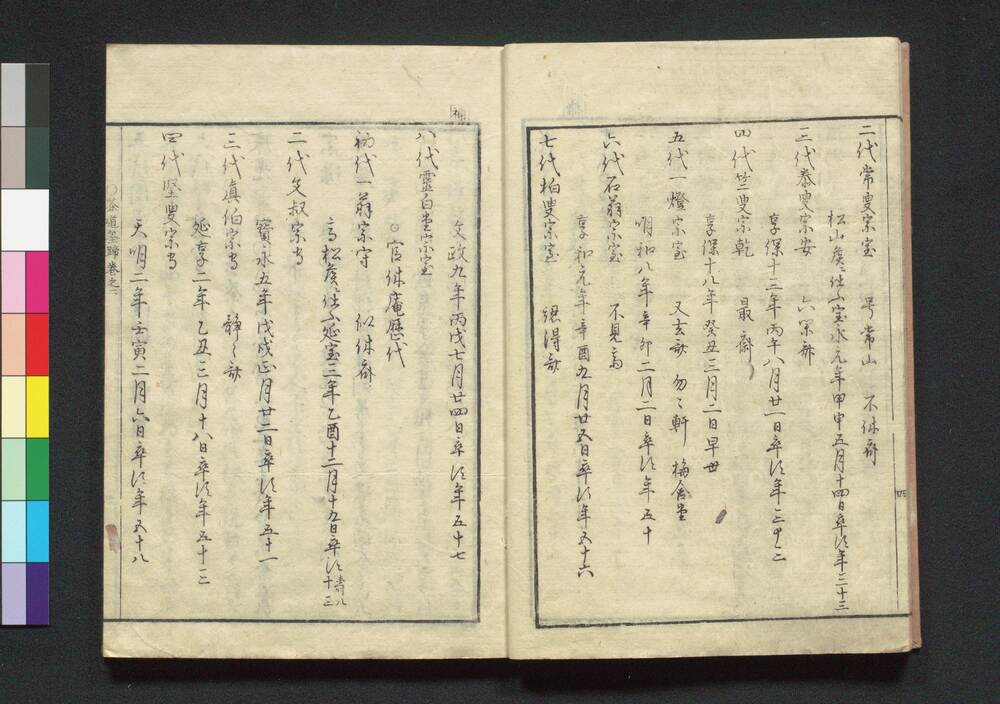 二代常叟宗室　号常山　不休斎
松山侯ニ仕ふ宝永元年甲申五月十四日卒行年三十三
三代泰叟宗安　六閑斎
享保十一年丙午八月廿一日卒行年三十三
四代竺叟宗乾　最々斎
享保十八年癸丑三月二日早世
五代一燈宗室　又玄斎　勿々軒
明和八年辛卯二月二日卒行年五十
六代石翁宗室　不見斎
享和元年辛酉九月廿五日卒行年五十六
七代柏叟宗室　認得斎
文政九年丙戌七月廿四日卒行年五十七
八代霊白堂宗室
○官休庵歴代
初代一翁宗守　似休斎
高松侯ニ仕ふ延宝三年乙　十二月十九日卒行
二代文叔宗守
寳永五年戊戌正月廿二日卒行年五十一
三代真伯宗守　静々斎
延享二年乙丑三月十八日卒行年五十三
四代堅叟宗守
天明二年壬寅二月六日卒行年五十八
茶道筌蹄巻之一